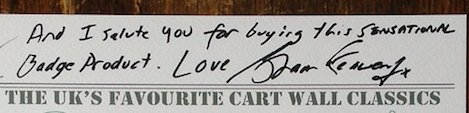 And I salute you for buying this SENSATIONAL
Badge Product. Love
THE UK'S FAVOURITE CART WALL CLASSICS